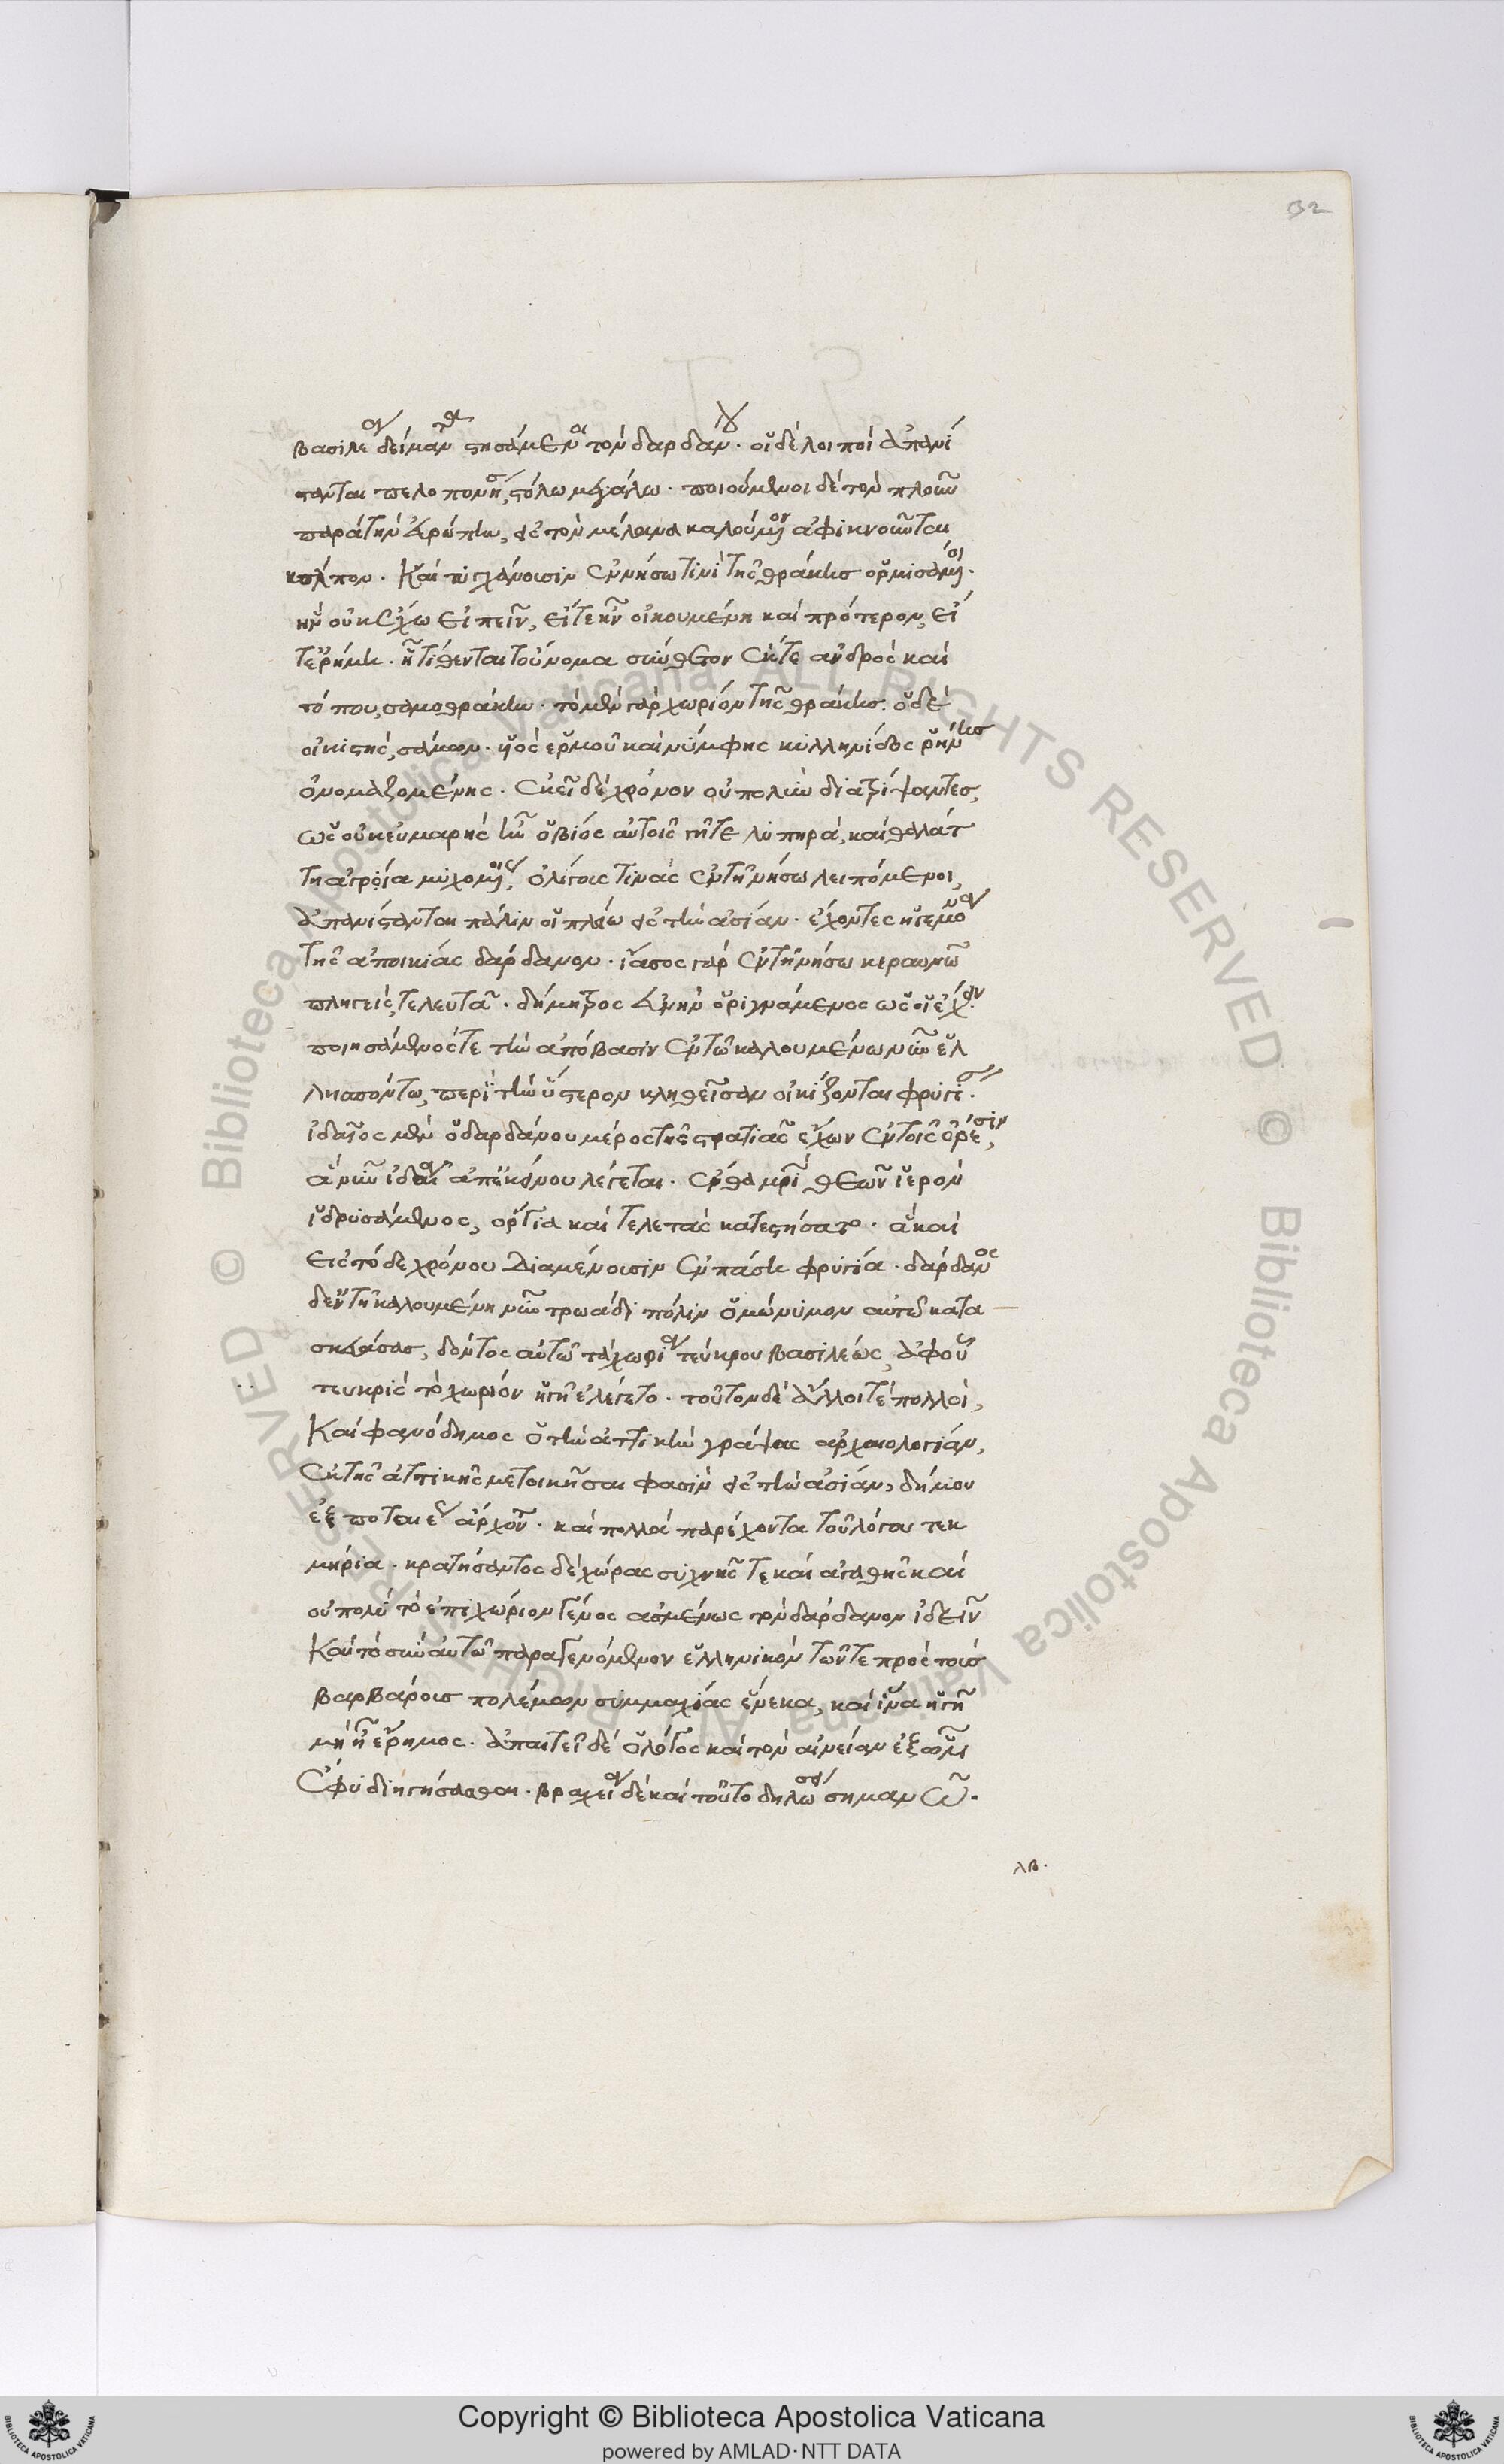 32
βασιλέα δείμαντα στησάμενοι τὸν δαρδάνου. οἱ δὲ λοιποὶ ἀπανί
στανται πελοποννήσου, στόλω μεγάλω. ποιούμενοι δὲ τὸν πλοῦν
παρὰ τὴν εὐρώπην, εἰς τὸν μέλανα καλούμενον ἀφικνοῦνται
κόλπον. Καὶ τυγχάνουσιν ἐν νήσω τινὶ τῆς θράκης ὁρμισάμενοι.
ἣν οὐκ ἔχω εἰπεῖν, εἴτε ἦν οἰκουμένη καὶ πρότερον, εἴ
τε ἐρήμη. ᾗ τίθενται τοὔνομα σύνθετον ἔκ τε ἀνδρὸς καὶ
τόπου, σαμοθράκην. τὸ μὲν γὰρ χωρίον τῆς θράκης. ὁ δὲ
οἰκιστής, σάμων. υἱὸς ἑρμοῦ καὶ νύμφης κυλληνίδος ῥήνης
ὀνομαζομένης. ἐκεῖ δὲ χρόνον οὐ πολὺν διατρίψαντες,
ὡς οὐκ εὐμαρὴς ἦν ὁ βίος αὐτοῖς γῆ τε λυπηρᾶ, καὶ θαλάτ
τη ἀγρία μαχομένοις, ὀλίγους τινὰς ἐν τῆ νήσω λειπόμενοι,
ἀπανίστανται πάλιν οἱ πλείω εἰς τὴν ἀσίαν. ἔχοντες ἡγεμόνα
τῆς ἀποικίας δάρδανον. ἴασος γὰρ ἐν τῆ νήσω κεραυνῶ
πληγεὶς τελευτᾶ. δήμητρος εὐνὴν ὀριγνώμενος ὡς οἱ ἔχον.
ποιησάμενός τε τὴν ἀπόβασιν ἐν τῶ καλουμένω νῦν ἑλ
λησπόντω, περὶ τὴν ὕστερον κληθεῖσαν οἰκίζονται φρυγίαν.
ἰδαῖος μὲν ὁ δαρδάνου μέρος τῆς στρατιᾶς ἔχων ἐν τοῖς ὄρεσιν,
ἃ νῦν ἰδαῖα ἀπ' ἐκείνου λέγεται. ἔνθα μητρὶ θεῶν ἱερὸν
ἱδρυσάμενος, ὄργια καὶ τελετὰς κατεστήσατο. ἃ καὶ
εἰς τόδε χρόνου διαμένουσιν ἐν πάση φρυγία. δάρδανος
δὲ ἐν τῆ καλουμένη νῦν τρωάδι πόλιν ὁμώνυμον αὐτῶ κατα
σκευάσας, δόντος αὐτῶ τὰ χωρία τεύκρου βασιλέως, ἀφ' οὗ
τευκρὶς τὸ χωρίον ἡ γῆ ἐλέγετο. τοῦτον δὲ ἄλλοι τε πολλοί,
Καὶ φανόδημος ὁ τὴν ἀττικὴν γράψας ἀρχαιολογίαν,
ἐκ τῆς ἀττικῆς μετοικῆσαί φασιν εἰς τὴν ἀσίαν, δήμου
ἐξ ποταιέως ἄρχοντα. καὶ πολλὰ παρέχονται τοῦ λόγου τεκ
μήρια. κρατήσαντος δὲ χώρας συχνῆς τε καὶ ἀγαθῆς καὶ
οὐ πολὺ τὸ ἐπιχώριον γένος ἀσμένως τὸν δάρδανον ἰδεῖν
Καὶ τὸ σὺν αὐτῶ παραγενόμενον ἑλληνικὸν τῶν τε πρὸς τοὺς
βαρβάροις πολέμων συμμαχίας ἕνεκα, καὶ ἵνα ἡ γῆ
μὴ ἦ ἔρημος. ἀπαιτεῖ δὲ ὁ λόγος καὶ τὸν αἰνείαν ἐξ ὧν
ἔφυ διηγήσασθαι. βραχεῖαν δὲ καὶ τοῦτο δηλώσω σημανῶ.
λβ.
Copyright © Biblioteca Apostolica Vaticana
powered by AMLAD·NTT DATA